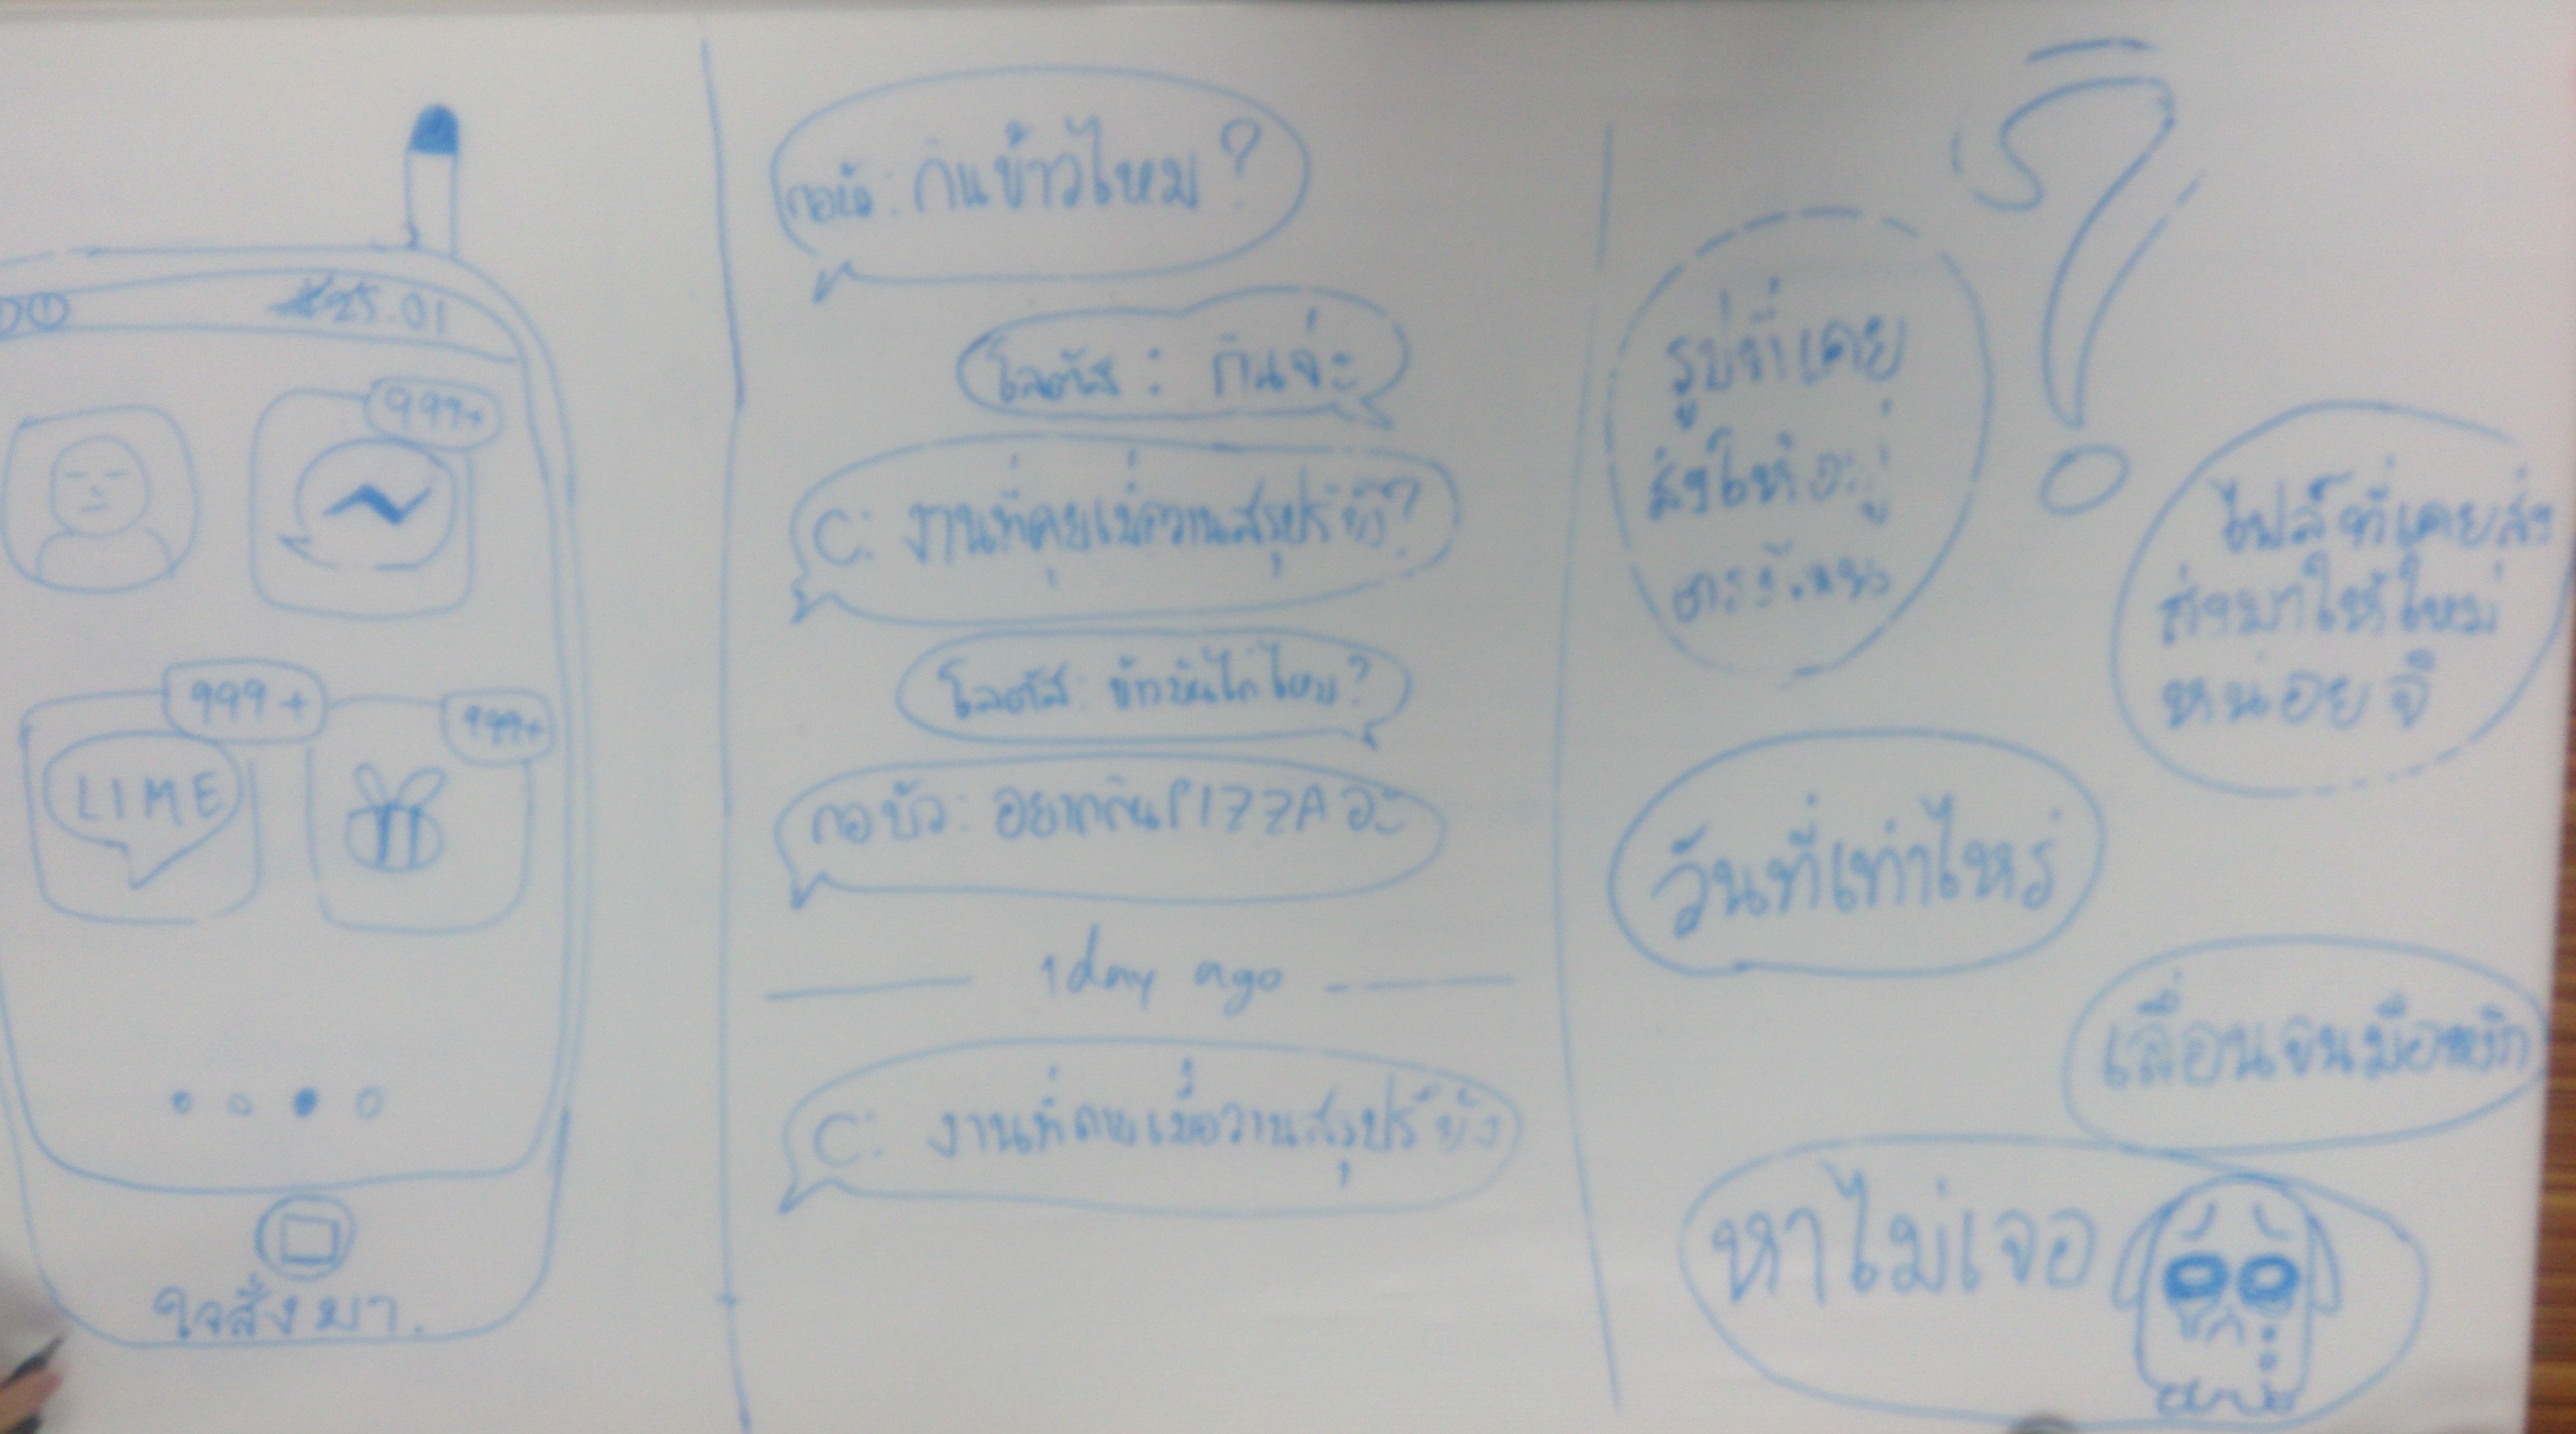 25.01
999+
999+
LIME
999+
ใจสั่งมา.
กอบัว: กินข้าวไหม?
โลตัส: กินจ่ะ
C: งานที่คุยเมื่อวานสรุปรึยัง?
โลตัส: ข้าวมันไก่ไหม?
กอบัว: อยากกินPIZZA อะ
1 day ago
C: งานที่คุยเมื่อวานสรุปรึยัง
รูปที่เคย
ส่งให้อยู่
ไฟล์ที่เคยส่ง
ส่งมาให้ใหม่
หน่อย จิ
วันที่เท่าไหร่
เลื่อนจนมือหงิก
หาไม่เจอ